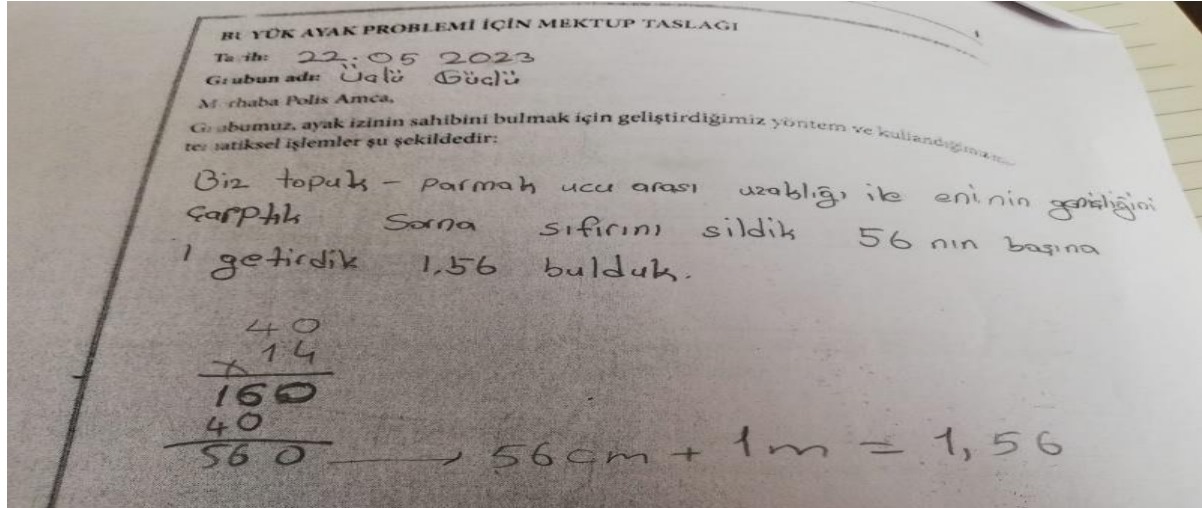 BÜYÜK AYAK PROBLEMİ İÇİN MEKTUP TASLAĞI
Tarih: 22.05 2023
Grubun adı: Üçlü Güçlü
Merhaba Polis Amca,
Grubumuz, ayak izinin sahibini bulmak için geliştirdiğimiz yöntem ve kullandığımız
işlemler şu şekildedir:
Biz topuk - parmak ucu arası uzaklığı ile eninin genişliğini
çarptık Sorna sıfırını sildik 56 nın başına
1 getirdik 1,56 bulduk.
40
x 14
160
40
560 → 56 cm + 1m = 1,56